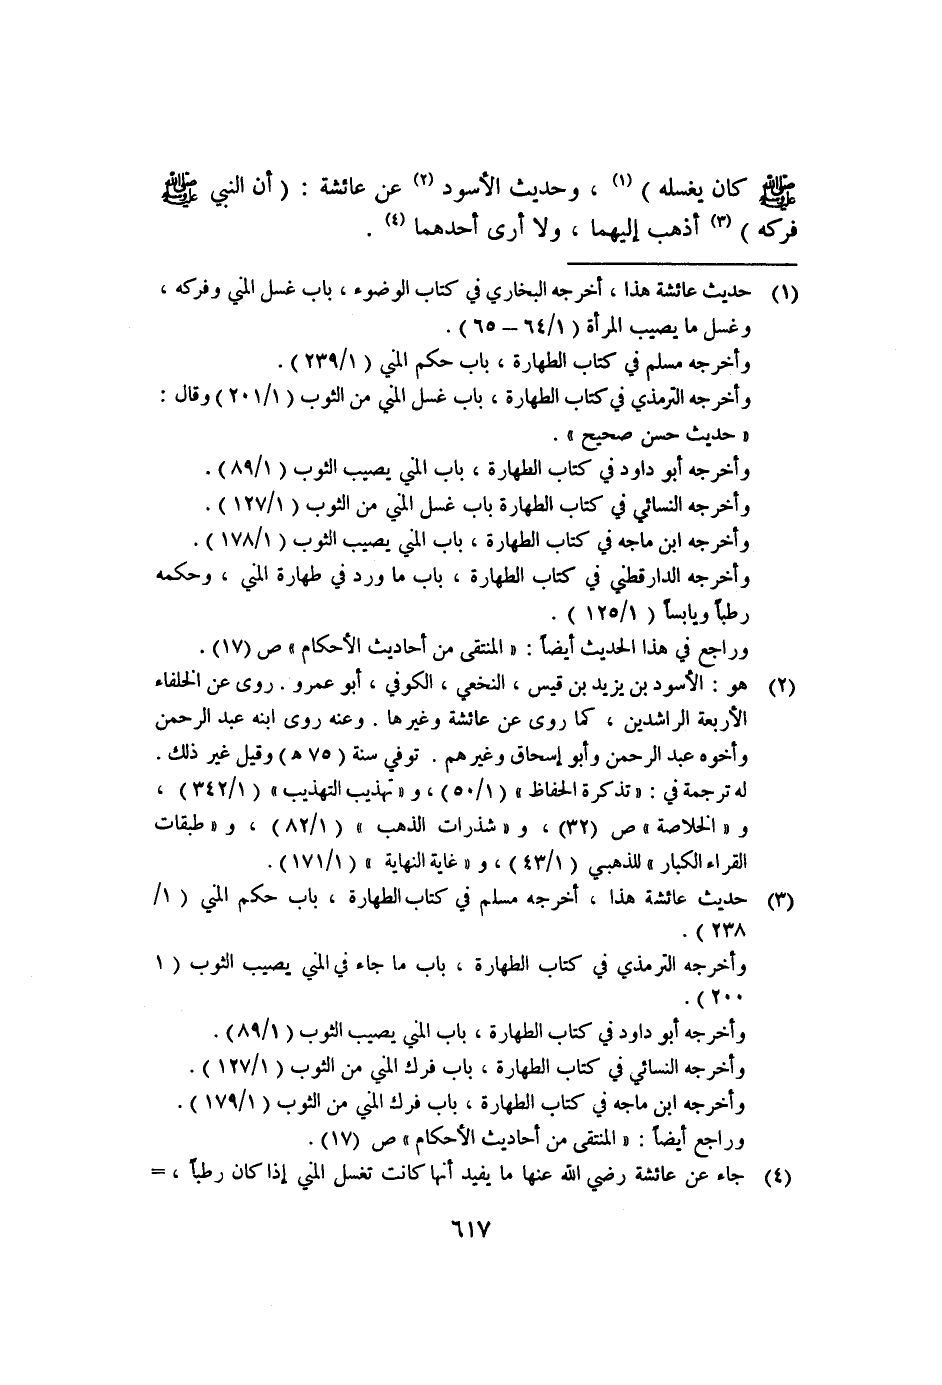 ﷺ كان يغسله ) (١) ، وحديث الأسود (٢) عن عائشة : ( أن النبي ﷺ
فركه ) (٣) أذهب إليهما ، ولا أرى أحدهما (٤) .
(١) حديث عائشة هذا ، أخرجه البخاري في كتاب الوضوء ، باب غسل المني وفركه ،
وغسل ما يصيب المرأة ( ٦٤/١ – ٦٥ ) .
وأخرجه مسلم في كتاب الطهارة ، باب حكم المني ( ٢٣٩/١ ) .
وأخرجه الترمذي في كتاب الطهارة ، باب غسل المني من الثوب ( ٢٠١/١ ) وقال :
« حديث حسن صحيح » .
وأخرجه أبو داود في كتاب الطهارة ، باب المني يصيب الثوب ( ٨٩/١ ) .
وأخرجه النسائي في كتاب الطهارة باب غسل المني من الثوب ( ١٢٧/١ ) .
وأخرجه ابن ماجه في كتاب الطهارة ، باب المني يصيب الثوب ( ١٧٨/١ ) .
وأخرجه الدارقطني في كتاب الطهارة ، باب ما ورد في طهارة المني ، وحكمه
رطباً ويابساً ( ١٢٥/١ ) .
وراجع في هذا الحديث أيضاً : « المنتقى من أحاديث الأحكام » ص (١٧) .
(٢) هو : الأسود بن يزيد بن قيس ، النخعي ، الكوفي ، أبو عمرو . روى عن الخلفاء
الأربعة الراشدين ، كما روى عن عائشة وغيرها . وعنه روى ابنه عبد الرحمن
وأخوه عبد الرحمن وأبو إسحاق وغيرهم . توفي سنة ( ٧٥ ه ) وقيل غير ذلك .
له ترجمة في : « تذكرة الحفاظ » (٥٠/١) ، و « تهذيب التهذيب » ( ٣٤٢/١ ) ،
و « الخلاصة » ص (٣٢) ، و « شذرات الذهب » ( ٨٢/١ ) ، و « طبقات
القراء الكبار » للذهبي ( ٤٣/١ ) ، و « غاية النهاية » ( ١٧١/١ ) .
(٣) حديث عائشة هذا ، أخرجه مسلم في كتاب الطهارة ، باب حكم المني ( ١/
٢٣٨ ) .
وأخرجه الترمذي في كتاب الطهارة ، باب ما جاء في المني يصيب الثوب ( ١
٢٠٠ ) .
وأخرجه أبو داود في كتاب الطهارة ، باب المني يصيب الثوب ( ٨٩/١ ) .
وأخرجه النسائي في كتاب الطهارة ، باب فرك المني من الثوب ( ١٢٧/١ ) .
وأخرجه ابن ماجه في كتاب الطهارة ، باب فرك المني من الثوب ( ١٧٩/١ ) .
وراجع أيضاً : « المنتقى من أحاديث الأحكام » ص (١٧) .
(٤) جاء عن عائشة رضي الله عنها ما يفيد أنها كانت تغسل المني إذا كان رطباً ، =
٦١٧